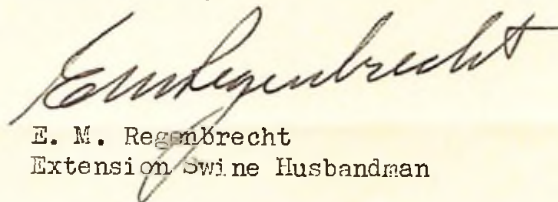 EMRegenbrecht
E. M. Regenbrecht
Extension Swine Husbandman